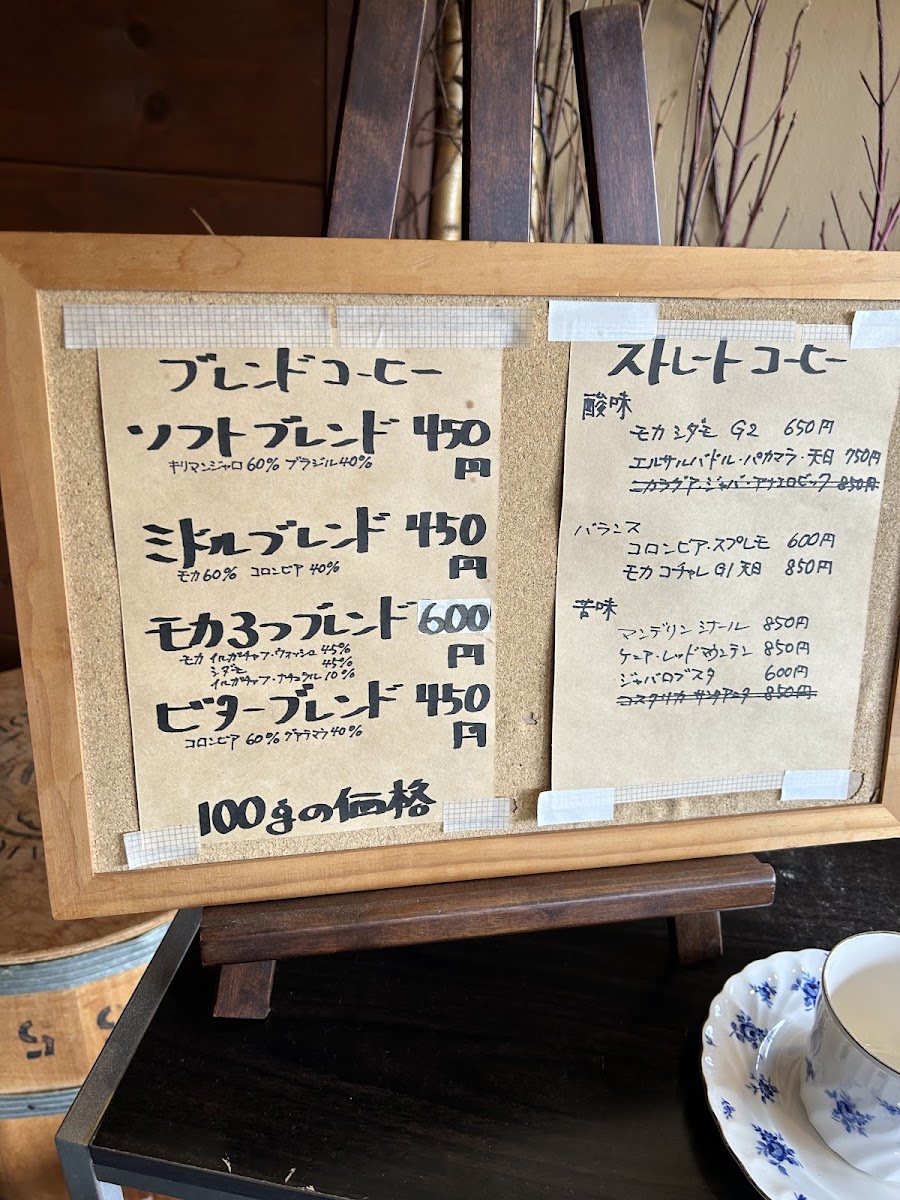 ブレンドコーヒー
ソフトブレンド 450円
キリマンジャロ60% ブラジル40%
ミドルブレンド 450円
モカ60% コロンビア 40%
モカ3つブレンド 600円
モカ イルガチャフ・ウォッシュ 45%
シダモ 45%
イルガチャフ・ナチュラル 10%
ビターブレンド 450円
コロンビア 60% グァテマラ40%
100gの価格
ストレートコーヒー
酸味
モカ シダモ G2 650円
エルサルバドル・パカマラ・天日 750円
ニカラグア・ジャバ・アナエロビック 850円
バランス
コロンビア・スプレモ 600円
モカ コチャレ G1 天日 850円
苦味
マンデリン シナール 850円
ケニア・レッドマウンテン 850円
ジャバロブスタ 600円
コスタリカ 850円